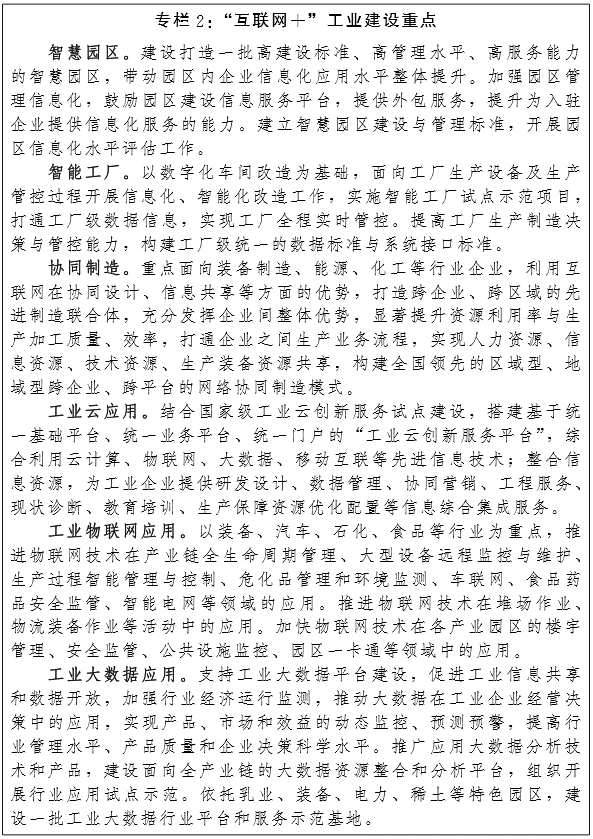 专栏2：“互联网＋”工业建设重点
智慧园区。建设打造一批高建设标准、高管理水平、高服务能力
的智慧园区，带动园区内企业信息化应用水平整体提升。加强园区管
理信息化，鼓励园区建设信息服务平台，提供外包服务，提升为入驻
企业提供信息化服务的能力。建立智慧园区建设与管理标准，开展园
区信息化水平评估工作。
智能工厂。以数字化车间改造为基础，面向工厂生产设备及生产
管控过程开展信息化、智能化改造工作，实施智能工厂试点示范项目，
打通工厂级数据信息，实现工厂全程实时管控。提高工厂生产制造决
策与管控能力，构建工厂级统一的数据标准与系统接口标准。
协同制造。重点面向装备制造、能源、化工等行业企业，利用互
联网在协同设计、信息共享等方面的优势，打造跨企业、跨区域的先
进制造联合体，充分发挥企业间整体优势，显著提升资源利用率与生
产加工质量、效率，打通企业之间生产业务流程，实现人力资源、信
息资源、技术资源、生产装备资源共享，构建全国领先的区域型、地
域型跨企业、跨平台的网络协同制造模式。
工业云应用。结合国家级工业云创新服务试点建设，搭建基于统
一基础平台、统一业务平台、统一门户的“工业云创新服务平台”，综
合利用云计算、物联网、大数据、移动互联等先进信息技术；整合信
息资源，为工业企业提供研发设计、数据管理、协同营销、工程服务、
现状诊断、教育培训、生产保障资源优化配置等信息综合集成服务。
工业物联网应用。以装备、汽车、石化、食品等行业为重点，推
进物联网技术在产业链全生命周期管理、大型设备远程监控与维护、
生产过程智能管理与控制、危化品管理和环境监测、车联网、食品药
品安全监管、智能电网等领域的应用。推进物联网技术在堆场作业、
物流装备作业等活动中的应用。加快物联网技术在各产业园区的楼宇
管理、安全监管、公共设施监控、园区一卡通等领域中的应用。
工业大数据应用。支持工业大数据平台建设，促进工业信息共享
和数据开放，加强行业经济运行监测，推动大数据在工业企业经营决
策中的应用，实现产品、市场和效益的动态监控、预测预警，提高行
业管理水平、产品质量和企业决策科学水平。推广应用大数据分析技
术和产品，建设面向全产业链的大数据资源整合和分析平台，组织开
展行业应用试点示范。依托乳业、装备、电力、稀土等特色园区，建
设一批工业大数据行业平台和服务示范基地。